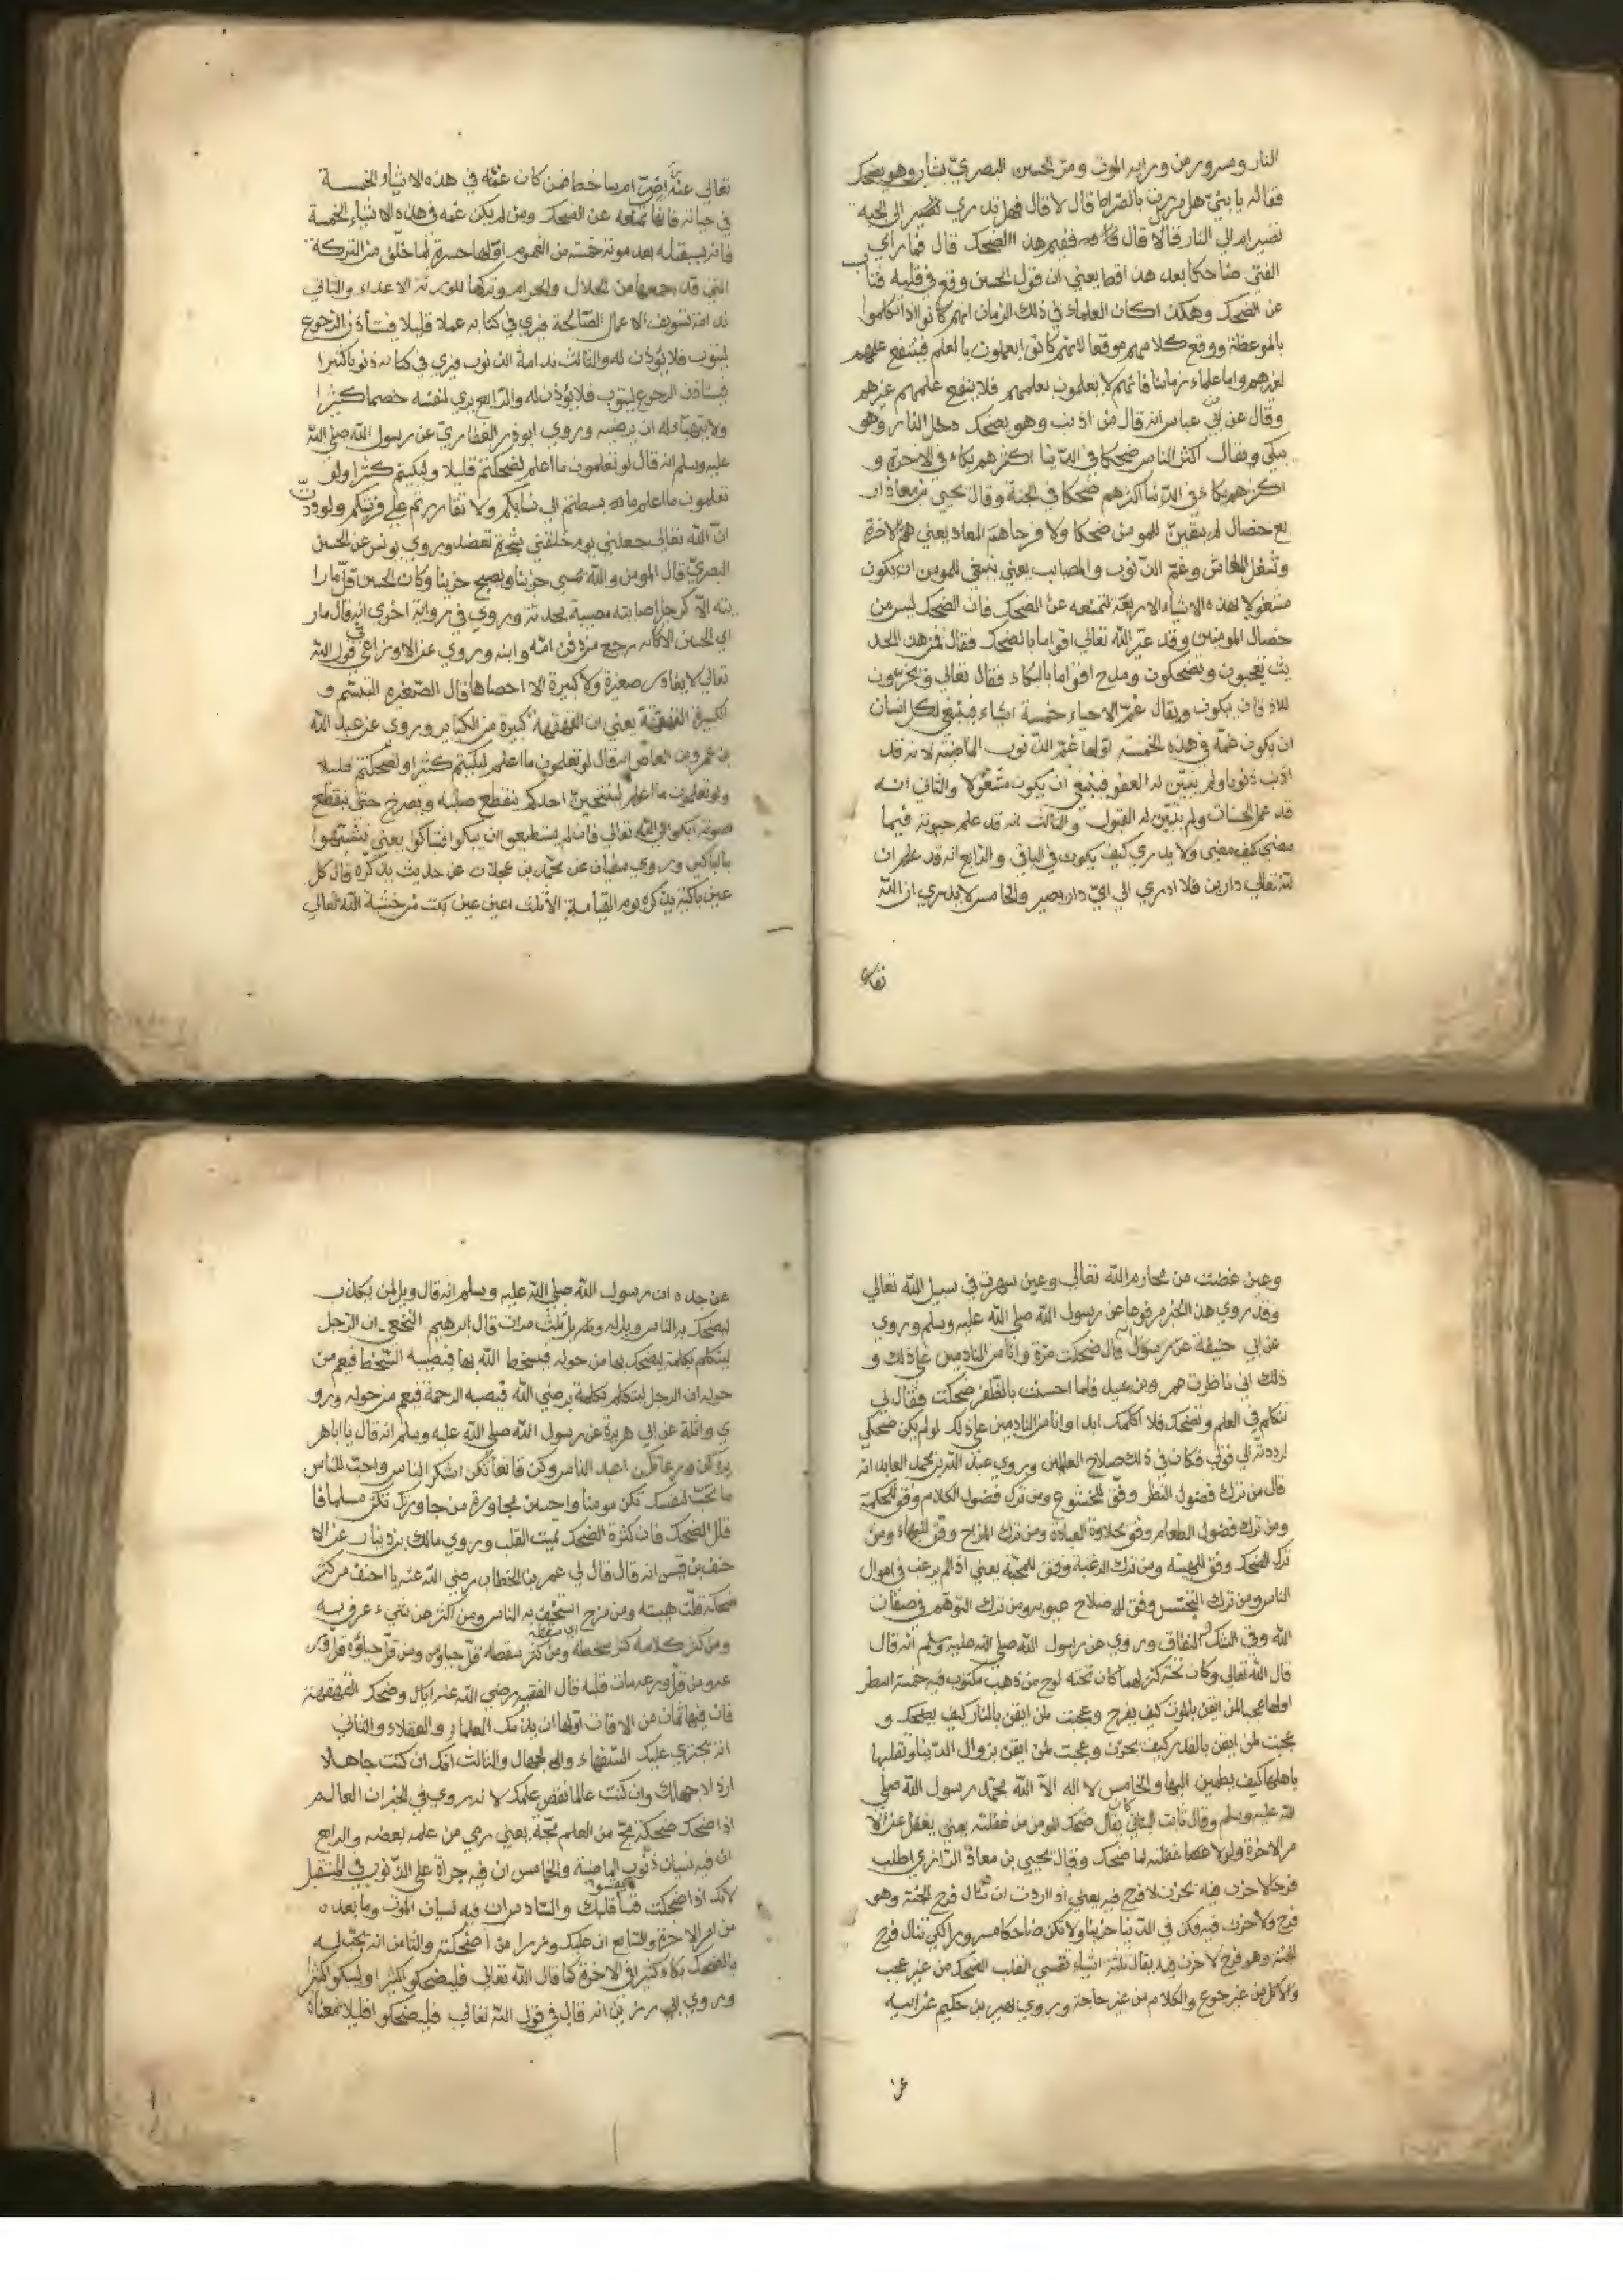 النار ومسرور من ورايه الموت ومر الحسن البصري بشاب وهو يضحك
فقال له يا بني هل مررت بالصراط قال لا قال فهل تدري تصير الى الجنة
تصير ام الي النار قال لا قال ففيم هذا الضحك قال فما راي
الفتي ضاحكا بعد هذا قط يعني ان قول الحسن وقع في قلبه فتاب
عن الضحك وهكذا كان العلماء في ذلك الزمان انهم كانوا اذا تكلموا
بالموعظة ووقع كلامهم موقعا لانهم كانوا يعملون بالعلم فينفع علمهم
لغيرهم واما علماء زماننا فانهم لا يعملون بعلمهم فلا ينفع علمهم غيرهم
وقال عن ابن عباس انه قال من اذنب وهو يضحك دخل النار وهو
يبكي ويقال اكثر الناس ضحكا في الدنيا اكثرهم بكاء في الاخرة و
اكثرهم بكاء في الدنيا اكثرهم ضحكا في الجنة وقال يحيي بن معاذ ار
بع خصال لم يبقين للمومن ضحكا ولا فرحا هم المعاد يعني هم الاخرة
وشغل المعاش وغم الذنوب والمصايب يعني ينبغي للمومن ان يكون
مشغولا بهذه الاشياء الاربعة لتمنعه عن الضحك فان الضحك ليس من
خصال المومنين وقد عير الله تعالي اقواما بالضحك فقال افمن هذا الحد
يث تعجبون وتضحكون ومدح اقواما بالبكاء فقال تعالي ويخرون
للاذقان يبكون ويقال غم الاحياء خمسة اشياء فينبغي لكل انسان
ان يكون غمه في هذه الخمسة اولها غم الذنوب الماضية لانه قد
اذنب ذنوبا ولم يتبين له العفو فينبغي ان يكون مشغولا والثاني انه
قد عمل الحسنات ولم يتبين له القبول والثالث انه قد علم حيوته فيما
مضي كيف مضي ولا يدري كيف يكون في الباقي والرابع انه قد علم ان
لله تعالي دارين فلا ادري الي اي دار يصير والخامس لا يدري ان الله
تعالي
تعالي عنه راض ام ساخط فمن كان غمه في هذه الاشياء الخمسة
في حياته فانها تمنعه عن الضحك ومن لم يكن غمه في هذه الاشياء الخمسة
فانه يستقبله بعد موته خمسة من الغموم اولها حسرة لما خلف من التركة
التي قد جمعها من الحلال والحرام وتركها لورثة الاعداء والثاني
ندامة تسويف الاعمال الصالحة فيري في كتابه عملا قليلا فيستاذن الرجوع
ليتوب فلا يؤذن له والثالث ندامة الذنوب فيري في كتابه ذنوبا كثيرا
فيستاذن الرجوع ليتوب فلا يؤذن له والرابع يري لنفسه خصما كثيرا
ولا يتهياء له ان يرضيه وروي ابو ذر الغفاري عن رسول الله صلي الله
عليه وسلم انه قال لو تعلمون ما اعلم لضحكتم قليلا ولبكيتم كثيرا ولو
تعلمون ما اعلم ما بسطتم الي نسايكم ولا تقاررتم علي فرشكم ولوددت
ان الله تعالي جعلني يوم خلقني شجرة تعضد وروي يونس عن الحسن
البصري قال المومن والله يمسي حزينا ويصبح حزينا وكان الحسن قل ما را
يته الا كرجل اصابته مصيبة محدثة وروي في رواية اخري انه قال ما ر
اي الحسن الا كانه رجع من دفن امه وابنه وروي عن الاوزاعي في قول الله
تعالي لا يغادر صغيرة ولا كبيرة الا احصاها قال الصغيرة التبسم و
الكبيرة القهقهة يعني ان القهقهة كبيرة من الكباير وروي عن عبد الله
بن عمرو بن العاص انه قال لو تعلمون ما اعلم لبكيتم كثيرا ولضحكتم قليلا
ولو تعلمون ما اعلم احدكم ينقطع صلبه ويصرخ حتي ينقطع
صوته ابكوا الي الله تعالي فان لم يستطيعوا ان يبكوا فتباكوا يعني تشبهوا
بالباكين وروي سفيان عن محمد بن عجلان عن حديث يذكره قال كل
عين باكية يوم القيامة الا ثلث اعين عين بكت من خشية الله تعالي
وعين غضت من محارم الله تعالي وعين سهرت في سبيل الله تعالي
وقد روي هذا الخبر مرفوعا عن رسول الله صلي الله عليه وسلم وروي
عن ابي حنيفة قال ضحكت مرة وانا من النادمين علي ذلك و
ذلك اني ناظرت عمرو بن عبيد فلما احسنت بالظفر ضحكت فقال لي
تتكلم في العلم وتضحك فلا اكلمك ابدا وانا من النادمين علي ذلك لو لم يكن ضحكي
لرددته الي قولي فكان في ذلك صلاح العالمين وروي عبد الله بن محمد العابد انه
قال من ترك فضول النظر وفق للخشوع ومن ترك فضول الكلام وفق للحكمة
ومن ترك فضول الطعام وفق بحلاوة العبادة ومن ترك المزاح وفق للبهاء ومن
ترك الضحك وفق للهيبة ومن ترك الرغبة وفق للمحبة يعني اذا لم يرغب في اموال
الناس ومن ترك التجسس وفق لاصلاح عيوبه ومن ترك التوهم في صفات
الله وقي الشك والنفاق وروي عن رسول الله صلي الله عليه وسلم انه قال
قال الله تعالي وكان تحته كنز لهما كان تحته لوح من ذهب مكتوب فيه خمسة اسطر
اولها عجبا لمن ايقن بالموت كيف يفرح وعجبت لمن ايقن بالنار كيف يضحك و
عجبت لمن ايقن بالقدر كيف يحزن وعجبت لمن ايقن بزوال الدنيا وتقلبها
باهلها كيف يطمين اليها والخامس لا اله الا الله محمد رسول الله صلي
الله عليه وسلم وقال ثابت البناني كان يقال ضحك المومن من غفلته يعني يغفل عن الا
مر الاخرة ولولا غفلته لما ضحك وقال يحيي بن معاذ الرازي اطلب
فرحا لا حزن فيه بحزن لا فرح فيه يعني اذا اردت ان تنال فرح الجنة وهو
فرح ولا حزن فيه فكن في الدنيا حزينا ولا تكن ضاحكا مسرورا لكي تنال فرح
الجنة وهو فرح لا حزن فيه يقال ثلثة اشياء تقسي القلب الضحك من غير عجب
والاكل من غير جوع والكلام من غير حاجة وروي بهز بن حكيم عن ابيه
عن
عن جده ان رسول الله صلي الله عليه وسلم انه قال ويل لمن يكذب
ليضحك به الناس ويل له ويل له ثلث مرات قال ابرهيم النخعي ان الرجل
ليتكلم بكلمة ليضحك بها من حوله فيسخط الله بها فيصيبه السخط فيعم من
حوله ان الرجل ليتكلم بكلمة يرضي الله فيصبه الرحمة فيعم من حوله ورو
ي واثلة عن ابي هريرة عن رسول الله صلي الله عليه وسلم انه قال يا ابا هر
يرة كن ورعا تكن اعبد الناس وكن قانعا تكن اشكر الناس واحب للناس
ما تحب لنفسك تكن مومنا واحسن مجاورة من جاورك تكن مسلما فا
قلل الضحك فان كثرة الضحك تميت القلب وروي مالك بن دينار عن الا
حنف بن قيس انه قال قال لي عمر بن الخطاب رضي الله عنه يا احنف من كثر
ضحكه قلت هيبته ومن مزح استخف به الناس ومن اكثر من شيء عرف به
ومن كثر كلامه كثر سقطه ومن كثر سقطه قل حياؤه ومن قل حياؤه قل ور
عه ومن قل ورعه مات قلبه قال الفقيه رضي الله عنه اياك وضحك القهقهة
فان فيها ثمان من الافات اولها ان يذمك العلماء والعقلاء والثاني
انه يجترى عليك السفهاء والجهال والثالث انك ان كنت جاهلا
ازداد جهلك وان كنت عالما نقص علمك لانه روي في الخبر ان العالم
اذا ضحك ضحكة مج من العلم مجة يعني رمي من علمه بعضه والرابع
ان فيه نسيان ذنوب الماضية والخامس ان فيه جراة علي الذنوب في المستقبل
لانك اذا ضحكت قسا قلبك والسادس ان فيه نسيان الموت وما بعده
من امر الاخرة والسابع ان عليك وزر من اضحكته والثامن انه يجب له
بالضحك بكاء كثير في الاخرة كما قال الله تعالي فليضحكوا كثيرا وليبكوا كثيرا
وروي ابي رزين انه قال في قول الله تعالي فليضحكوا قليلا معناه